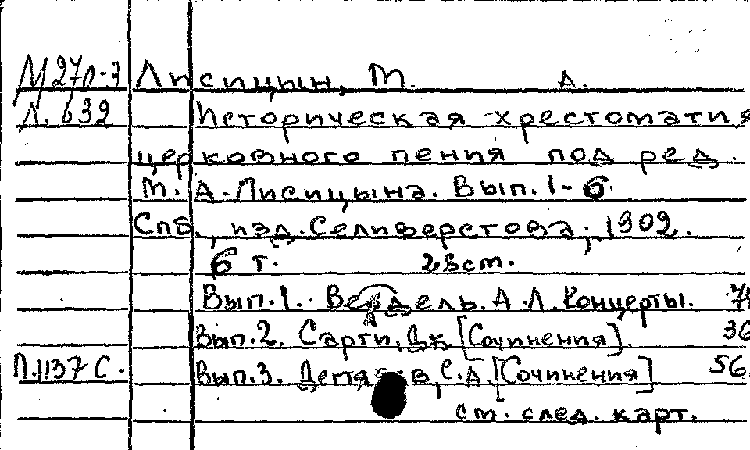 М 27л-3 Лисицын, М. А.
Л. 632 Историческая хрестоматия
церковного пения под ред.
М. А. Лисицына. Вып. 1-6
Спб., изд. Селиверстова, 1902.
6 т. 28 см.
Вып. 1. Ведель. А. Л. Концерты.
Вып. 2. Сарти, Дж. [Сочинения]. 36
П.1137 С. Вып. 3. Дегтярев, С. А. [Сочинения] 56
см. след. карт.